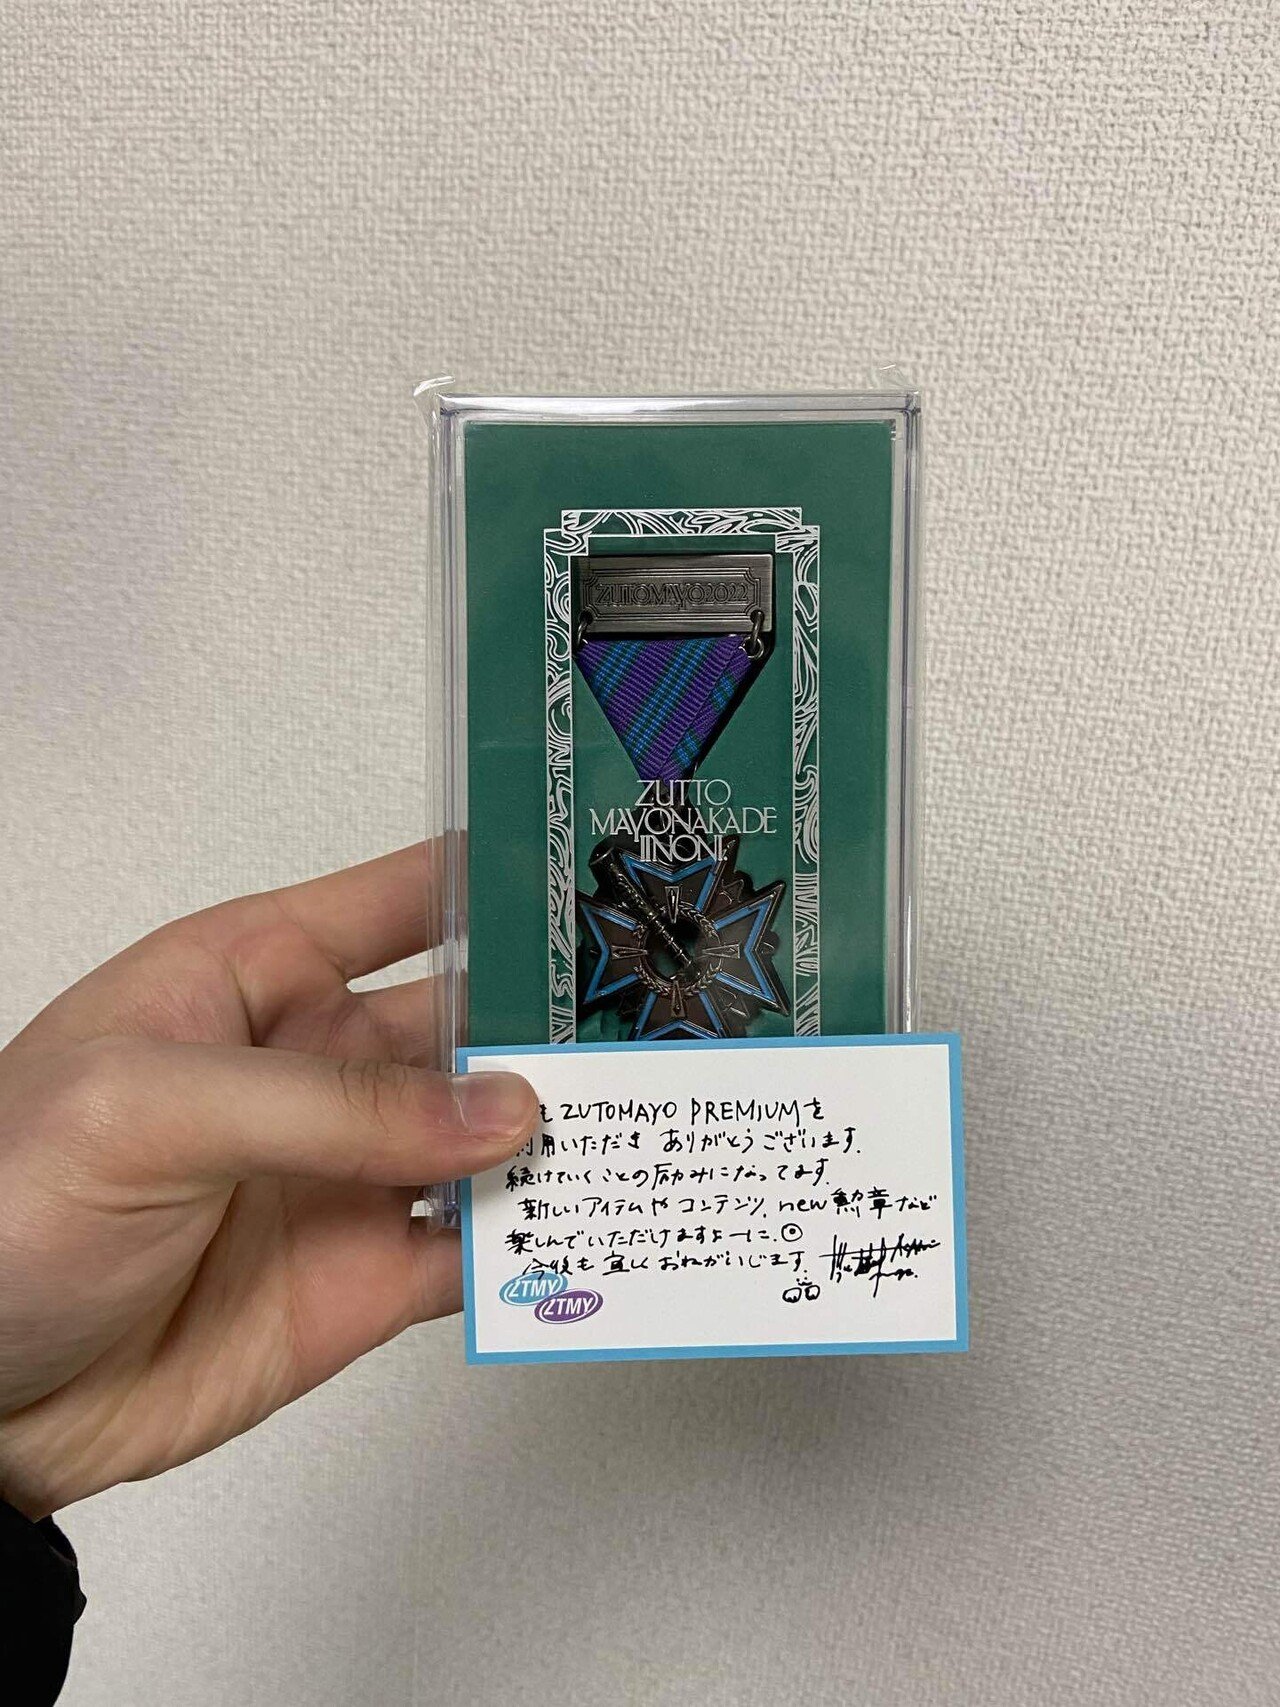 ZUTOMAYO2022
ZUTTO
MAYONAKADE
IINONI.
も ZUTOMAYO PREMIUMを
利用いただき ありがとうございます.
続けていくことの励みになってます.
新しいアイテムや コンテンツ、new 勲章など
楽しんでいただけますよーに.
今後も 宜しくおねがいします.
ZTMY
ZTMY